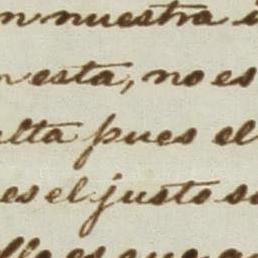 n nuestra
n esta, no es
ulta pues el
es el justo s
llo es que